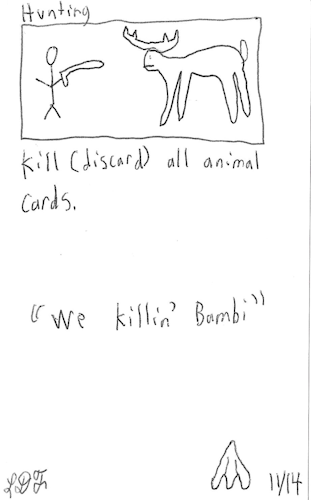 Hunting
Kill (discard) all animal
Cards.
"We killin' Bambi"
11/14